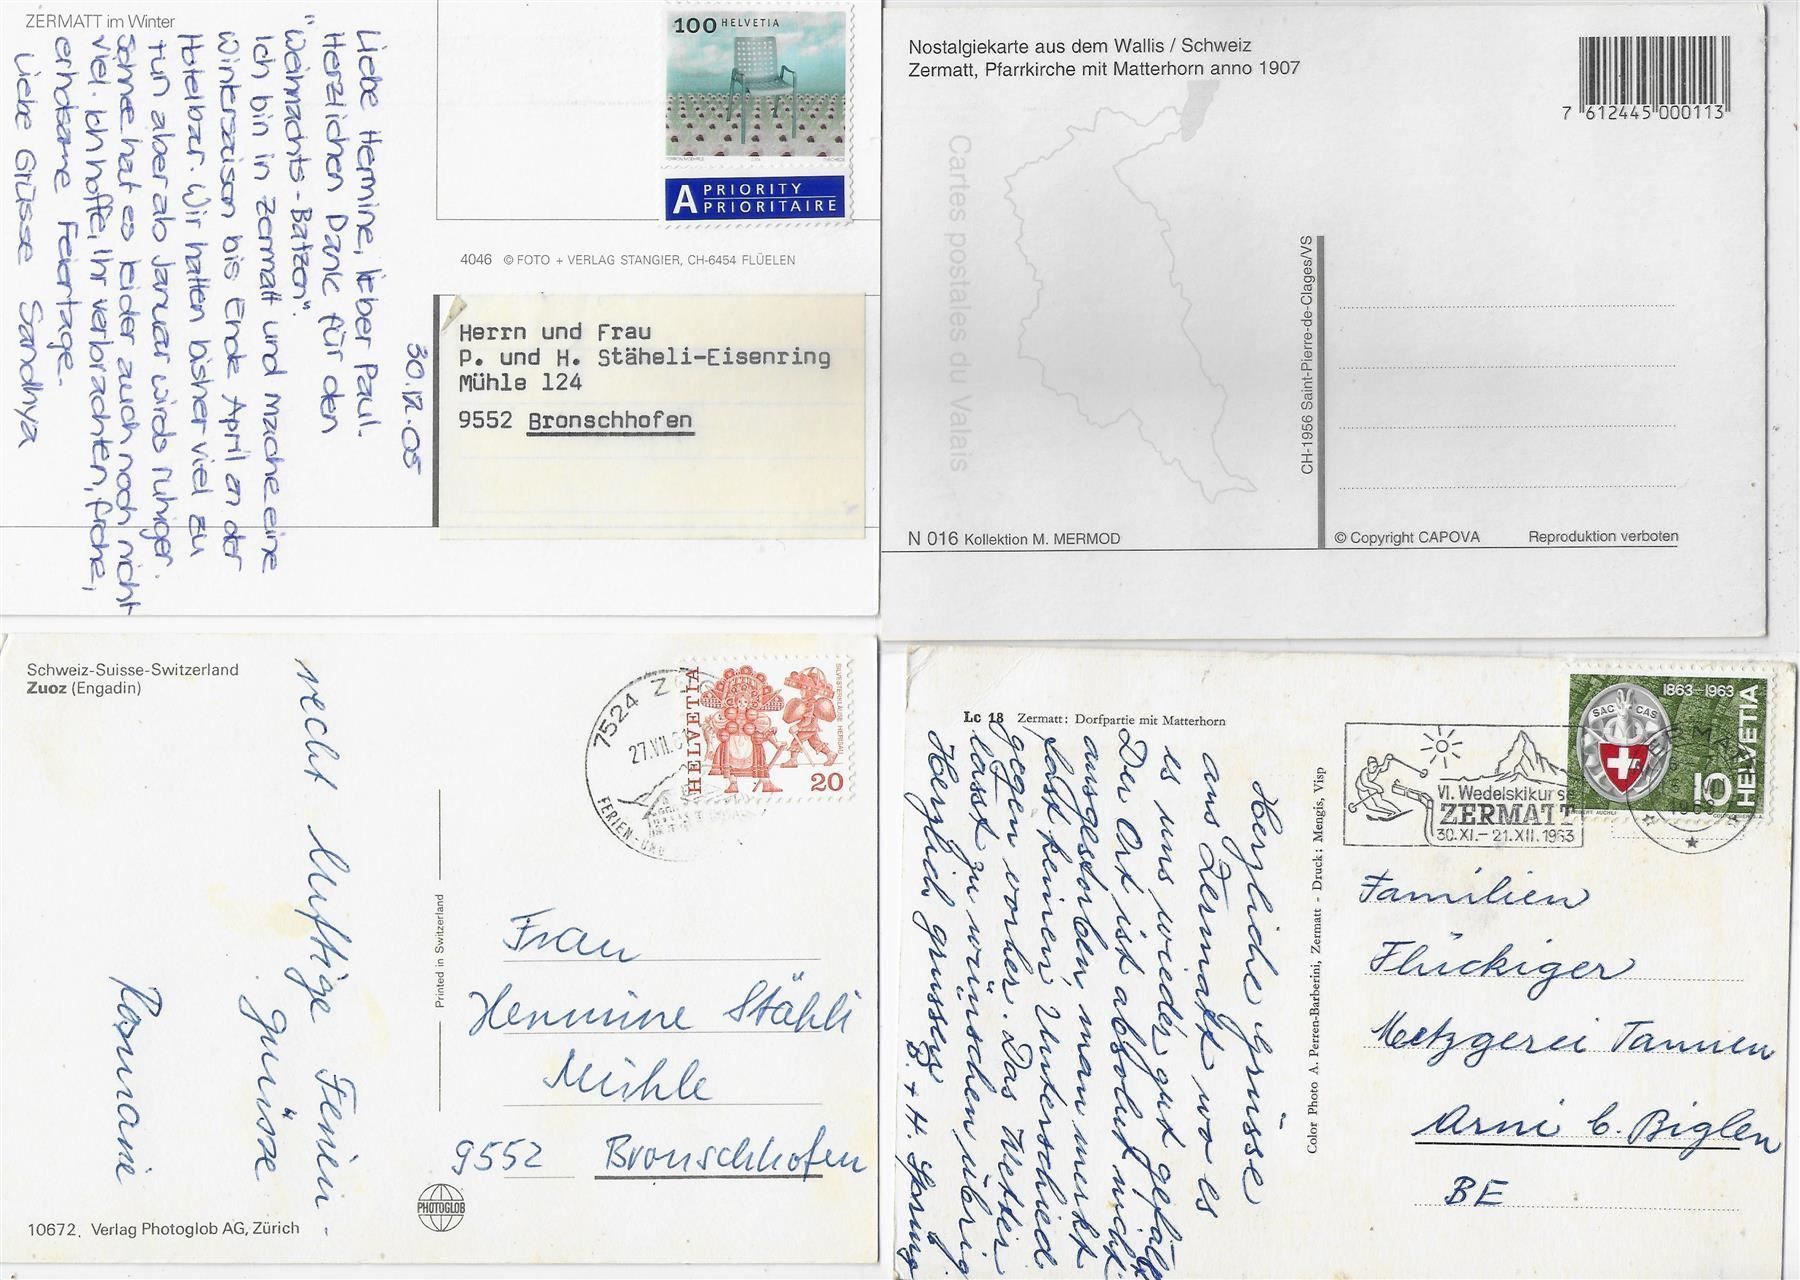 ZERMATT im Winter
30.12.05
Liebe Hermine, lieber Paul.
Herzlichen Dank für den
"Weihnachts-Batzen".
Ich bin in Zermatt und mache eine
Wintersaison bis Ende April an der
Hotelbar. Wir hatten bisher viel zu
tun aber ab Januar wirds ruhiger.
Schnee hat es leider auch noch nicht
viel. Ich hoffe, Ihr verbrachten, frohe,
erholsame Feiertage.
Liebe Grüsse Sandhya
100 HELVETIA
A PRIORITY
PRIORITAIRE
4046 © FOTO + VERLAG STANGIER, CH-6454 FLÜELEN
Herrn und Frau
P. und H. Stäheli-Eisenring
Mühle 124
9552 Bronschhofen
Nostalgiekarte aus dem Wallis / Schweiz
Zermatt, Pfarrkirche mit Matterhorn anno 1907
7 612445 000113
Cartes postales du Valais
CH-1956 Saint-Pierre-de-Clages/VS
N 016 Kollektion M. MERMOD
© Copyright CAPOVA
Reproduktion verboten
Schweiz-Suisse-Switzerland
Zuoz (Engadin)
recht luftige Ferien-
grüsse
Rosmarie
7524 ZUOZ
27.VII.81
FERIEN-UND
HELVETIA
SILVESTERKLÄUSE HERISAU
20
Printed in Switzerland
Frau
Hermine Stähli
Mühle
9552 Bronschhofen
PHOTOGLOB
10672. Verlag Photoglob AG, Zürich
Lc 18 Zermatt: Dorfpartie mit Matterhorn
Herzliche Grüsse
aus Zermatt wo es
es uns wieder gut gefällt
Der Ort ist absolut nicht
ausgestorben, man merkt
fast keinen Unterschied
gegen vorher. Das Wetter
lässt zu wünschen übrig
Herzlich grüssen
B. + H.
VI. Wedelskikurse
ZERMATT
30.XI.-21.XII.1963
1863-1963
SAC CAS
HELVETIA
10
Color Photo A. Perren-Barberini, Zermatt - Druck: Mengis, Visp
Familien
Flückiger
Metzgerei Tannen
Arni b. Biglen
BE